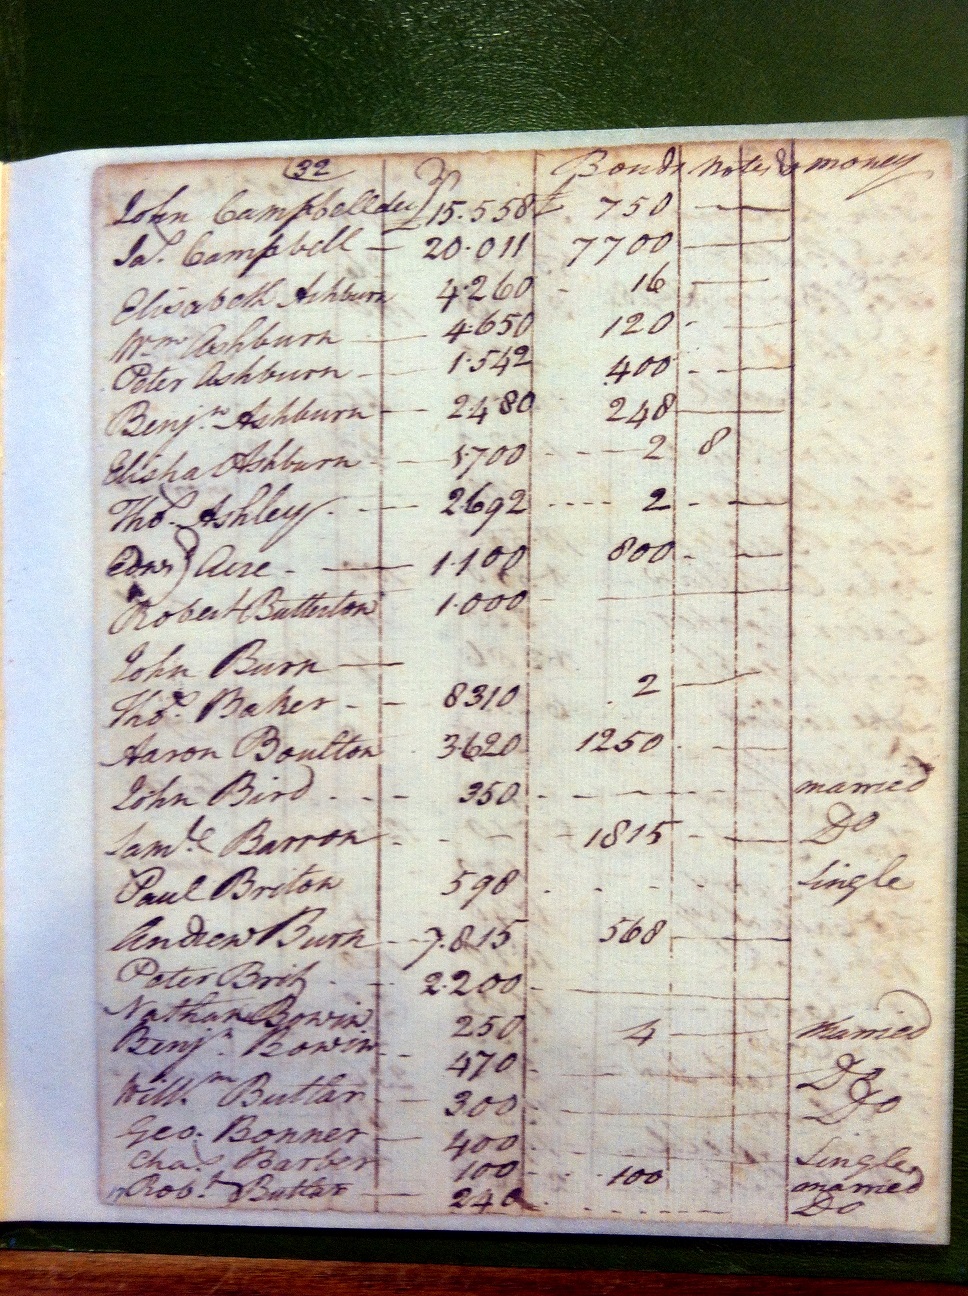 32 Bonds Notes & money
John Campbell 15.558 750
Jas. Campbell 20.011 7700
Elisabeth Ashburn 4.260 16
Wm Ashburn 4.650 120
Peter Ashburn 1.542 400
Benjn Ashburn 2480 248
Elisha Ashburn 1700 2 8
Thos. Ashley 2692 2
Edwd Acre 1.100 800
Robert Butterton 1.000
John Burn
Thos. Baker 8310 2
Aaron Boulton 3.620 1250
John Bird 350 married
Samle Barron 1815 Do
Paul Briton 598 Single
Andrew Burn 7.815 568
Peter 2.200
Nathan Bowin 250 4 Married
Benjn Bowin 470 Do
Willm Butlar 300 Do
Geo. Bonner 400 Single
Chas Barber 100 100 married
Robt Butlar 240 Do